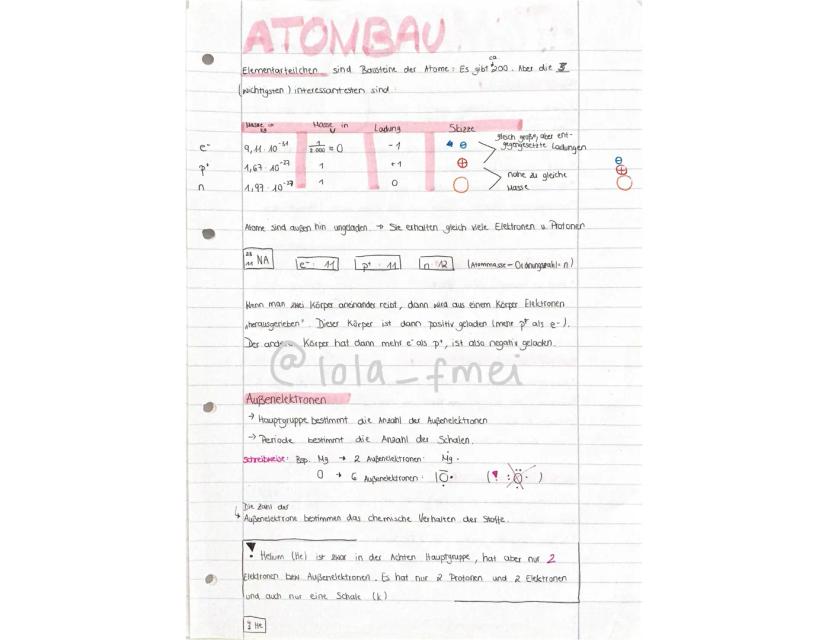 ATOMBAU
Elementarteilchen sind Bausteine der Atome: Es gibt ca 200. Aber die 3
(wichtigsten) interessantesten sind
Masse in kg Masse in u Ladung Skizze
e⁻ 9,11·10⁻³¹ 1/2.000 ≈ 0 -1 ⊖
p⁺ 1,67·10⁻²⁷ 1 +1 ⊕
n 1,97·10⁻²⁷ 1 0
gleich große, aber ent-
gegengesetzte Ladungen
nahe zu gleiche
Masse
Atome sind außen hin ungeladen → Sie erhalten gleich viele Elektronen u. Protonen
23 11 NA e⁻: 11 p⁺: 11 n: 12 (Atommasse - Ordnungszahl = n)
Wenn man zwei Körper aneinander reibt, dann wird aus einem Körper Elektronen
„herausgerieben". Dieser Körper ist dann positiv geladen (mehr p⁺ als e⁻).
Der andere Körper hat dann mehr e⁻ als p⁺, ist also negativ geladen.
@lola_fmei
Außenelektronen
→ Hauptgruppe bestimmt die Anzahl der Außenelektronen
→ Periode bestimmt die Anzahl der Schalen.
Schreibweise: Bsp. Mg → 2 Außenelektronen: Mg
O → 6 Außenelektronen: |O (! :O )
Die Zahl der
↳ Außenelektrone bestimmen das chemische Verhalten der Stoffe.
! Helium (He) ist zwar in der Achten Hauptgruppe, hat aber nur 2
Elektronen bzw Außenelektronen. Es hat nur 2 Protonen und 2 Elektronen
und auch nur eine Schale (k)
He